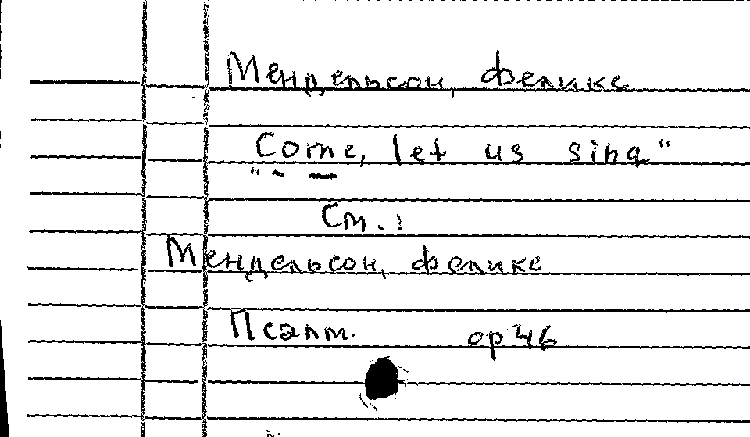 Мендельсон, Феликс
"Come, let us sing"
См.:
Мендельсон, Феликс
Псалм. op 46